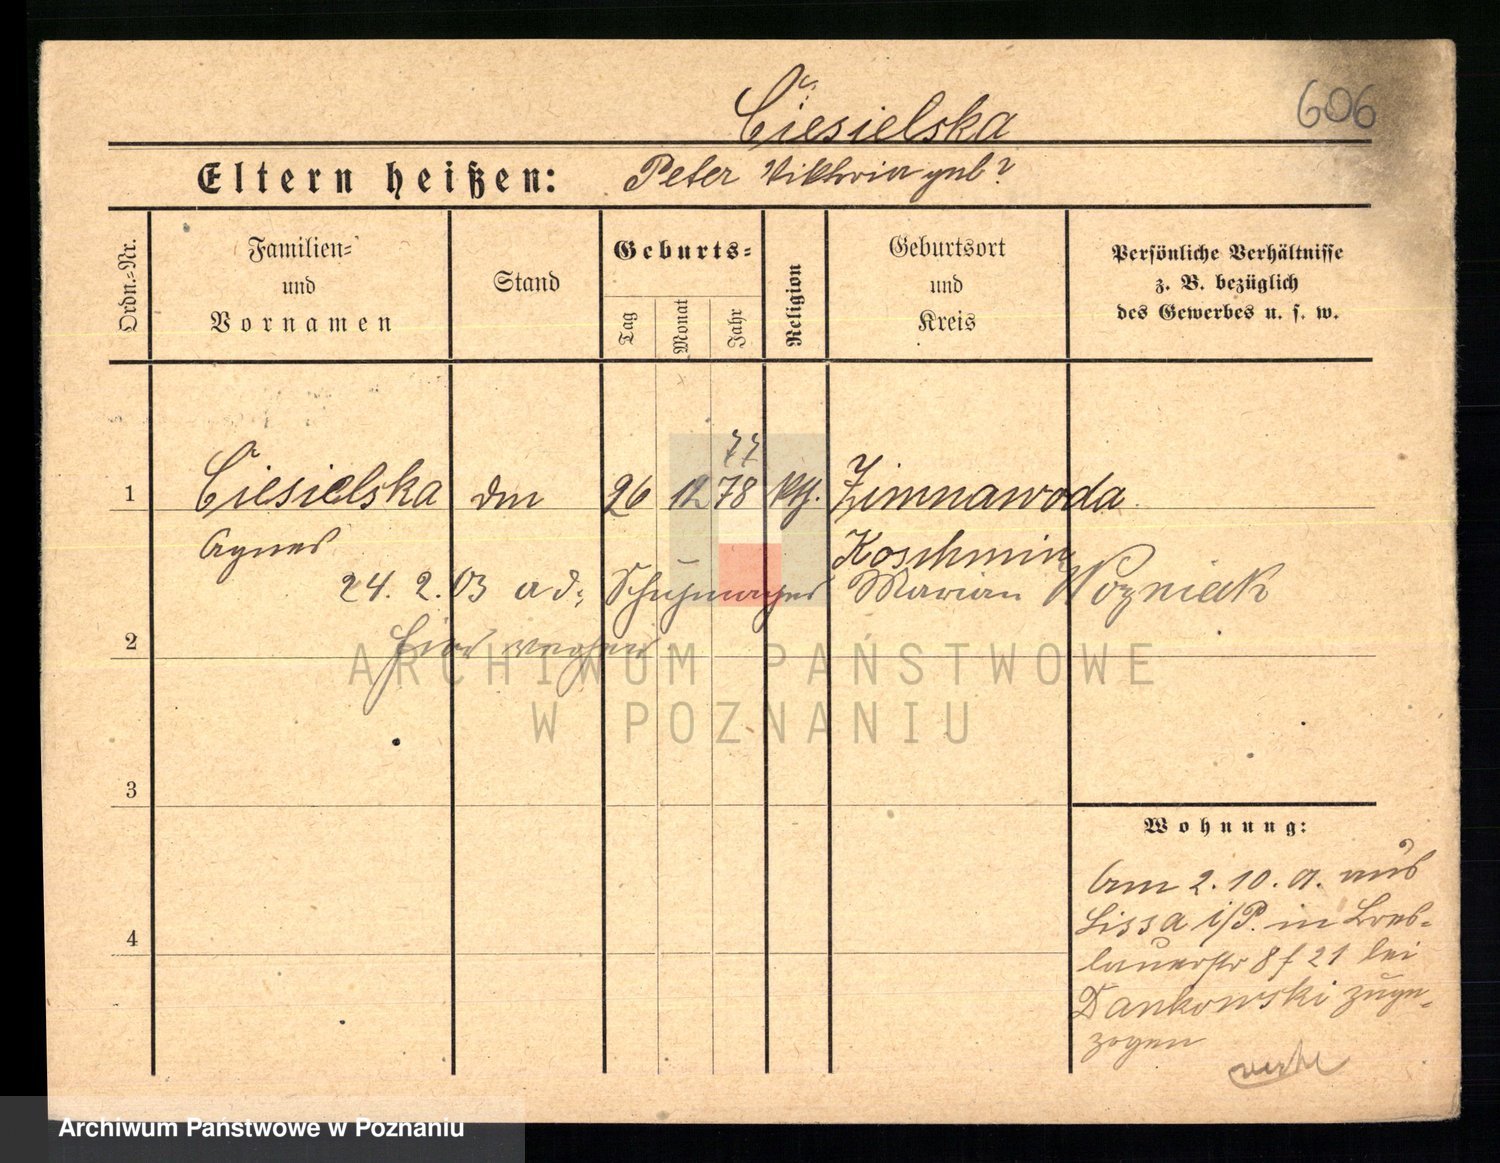 606
Ciesielska
Eltern heißen: Peter Viktoria geb?
Ordn.-Nr.
Familien-
und
Vornamen
Stand
Geburts-
Tag
Monat
Jahr
Religion
Geburtsort
und
Kreis
Persönliche Verhältnisse
z. B. bezüglich
des Gewerbes u. s. w.
77
1 Ciesielska 26 12 78 kth. Zimnawoda
Agnes Koschmin
24. 2. 03 Schuhmacher Marian Wozniak
2
ARCHIWUM PAŃSTWOWE
W POZNANIU
3
Wohnung:
Am 2. 10. 01. aus
Lissa i/P. in Bres-
lauerstr 8 f 21 bei
4
Dankowski zuge-
zogen
Archiwum Państwowe w Poznaniu